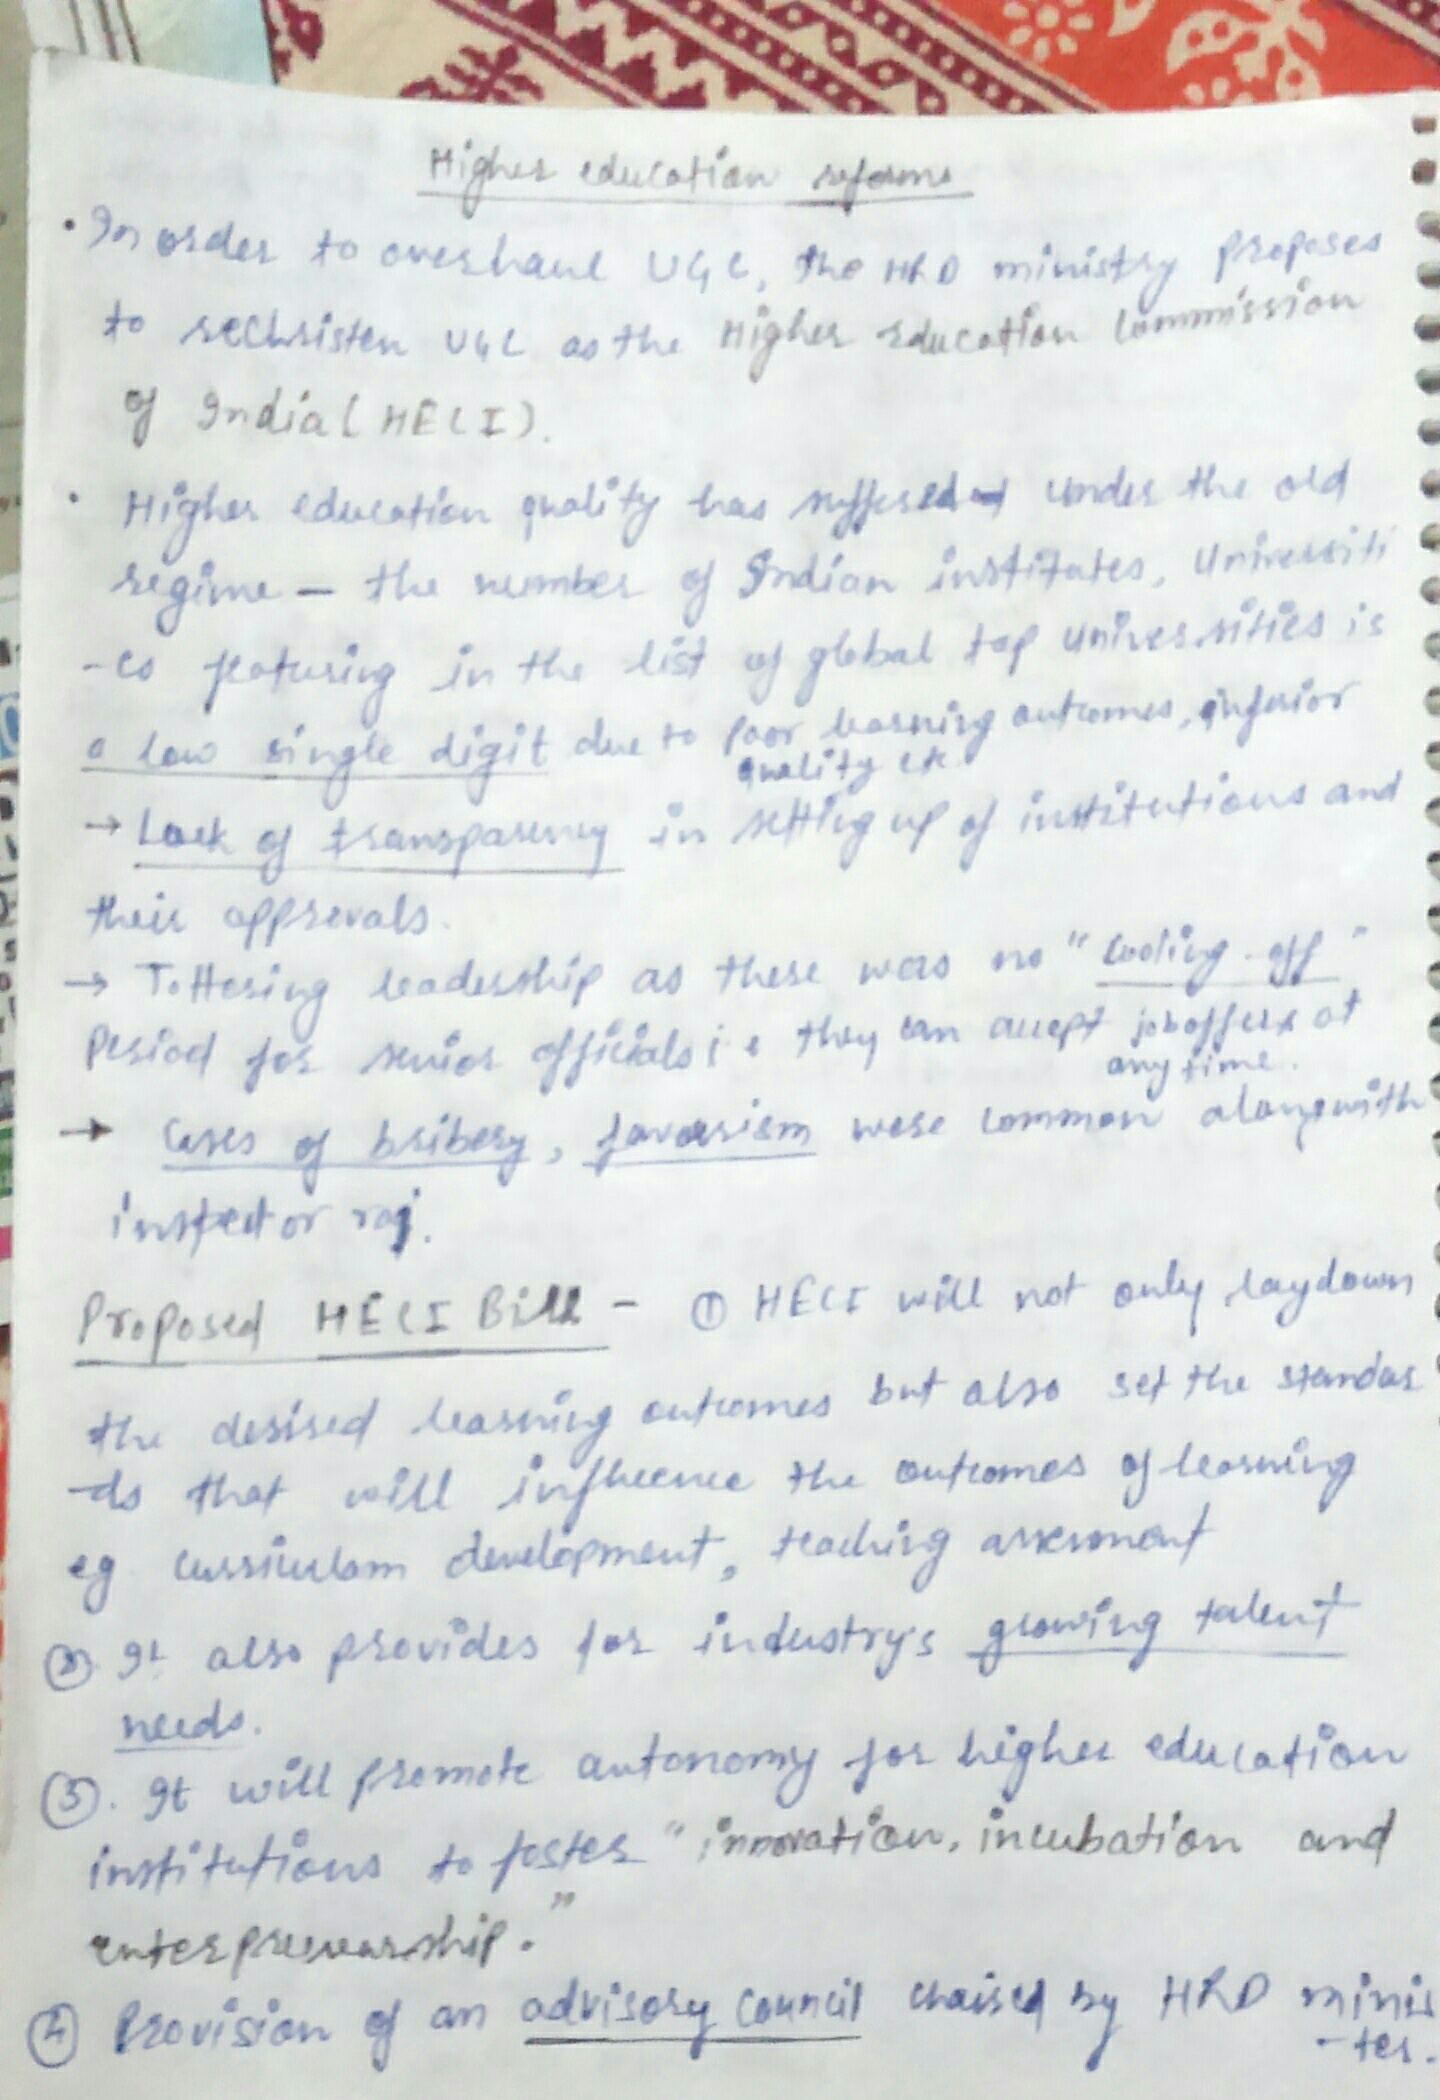 Higher education reforms
• In order to overhaul UGC, the HRD ministry proposes
to rechristen UGC as the Higher Education Commission
of India (HECI).
• Higher education quality has suffered under the old
regime — the number of Indian institutes, Universiti
-es featuring in the list of global top universities is
a low single digit due to poor learning outcomes, inferior
quality etc.
→ Lack of transparency in setting up of institutions and
their approvals.
→ Tottering leadership as there was no "cooling-off"
period for senior officials i.e they can accept job offers at
any time.
→ Cases of bribery, favorism were common alongwith
inspector raj.
Proposed HECI Bill - ① HECI will not only laydown
the desired learning outcomes but also set the standar
-ds that will influence the outcomes of learning
eg curriculam development, teaching assesment
②. It also provides for industry's growing talent
needs.
③. It will promote autonomy for higher education
institutions to foster "innovation, incubation and
enterpreneurship."
④ Provision of an advisory council chaired by HRD minis
-ter.